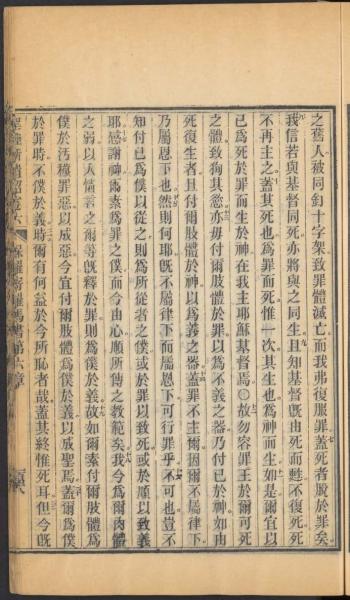 之舊人被同釘十字架致罪體滅亡而我弗復服罪蓋死者脫於罪矣
我信若與基督同死亦將與之同生且知基督旣由死而甦不復死死
不再主之蓋其死也爲罪而死惟一次其生也爲神而生如是爾宜以
己爲死於罪而生於神在我主耶穌基督焉〇故勿容罪王於爾可死
之體致狥其慾亦毋付爾肢體於罪以爲不義之器乃付己於神如由
死復生者且付爾肢體於神以爲義之器蓋罪不主爾因爾不屬律下
乃屬恩下也然則何耶旣不屬律下而屬恩下可行罪乎不可也豈不
知付己爲僕以從之則爲所從者之僕或於罪以致死或於順以致義
耶感謝神爾素爲罪之僕而今由心順所傳之教範矣我今爲爾肉體
之弱以人情言之爾等旣釋於罪則爲僕於義故如爾素付爾肢體爲
僕於汚穢罪惡以成惡今宜付爾肢體爲僕於義以成聖焉蓋爾爲僕
於罪時不僕於義時爾有何益於今所恥者哉蓋其終惟死耳但今旣
保羅達羅馬書第六章